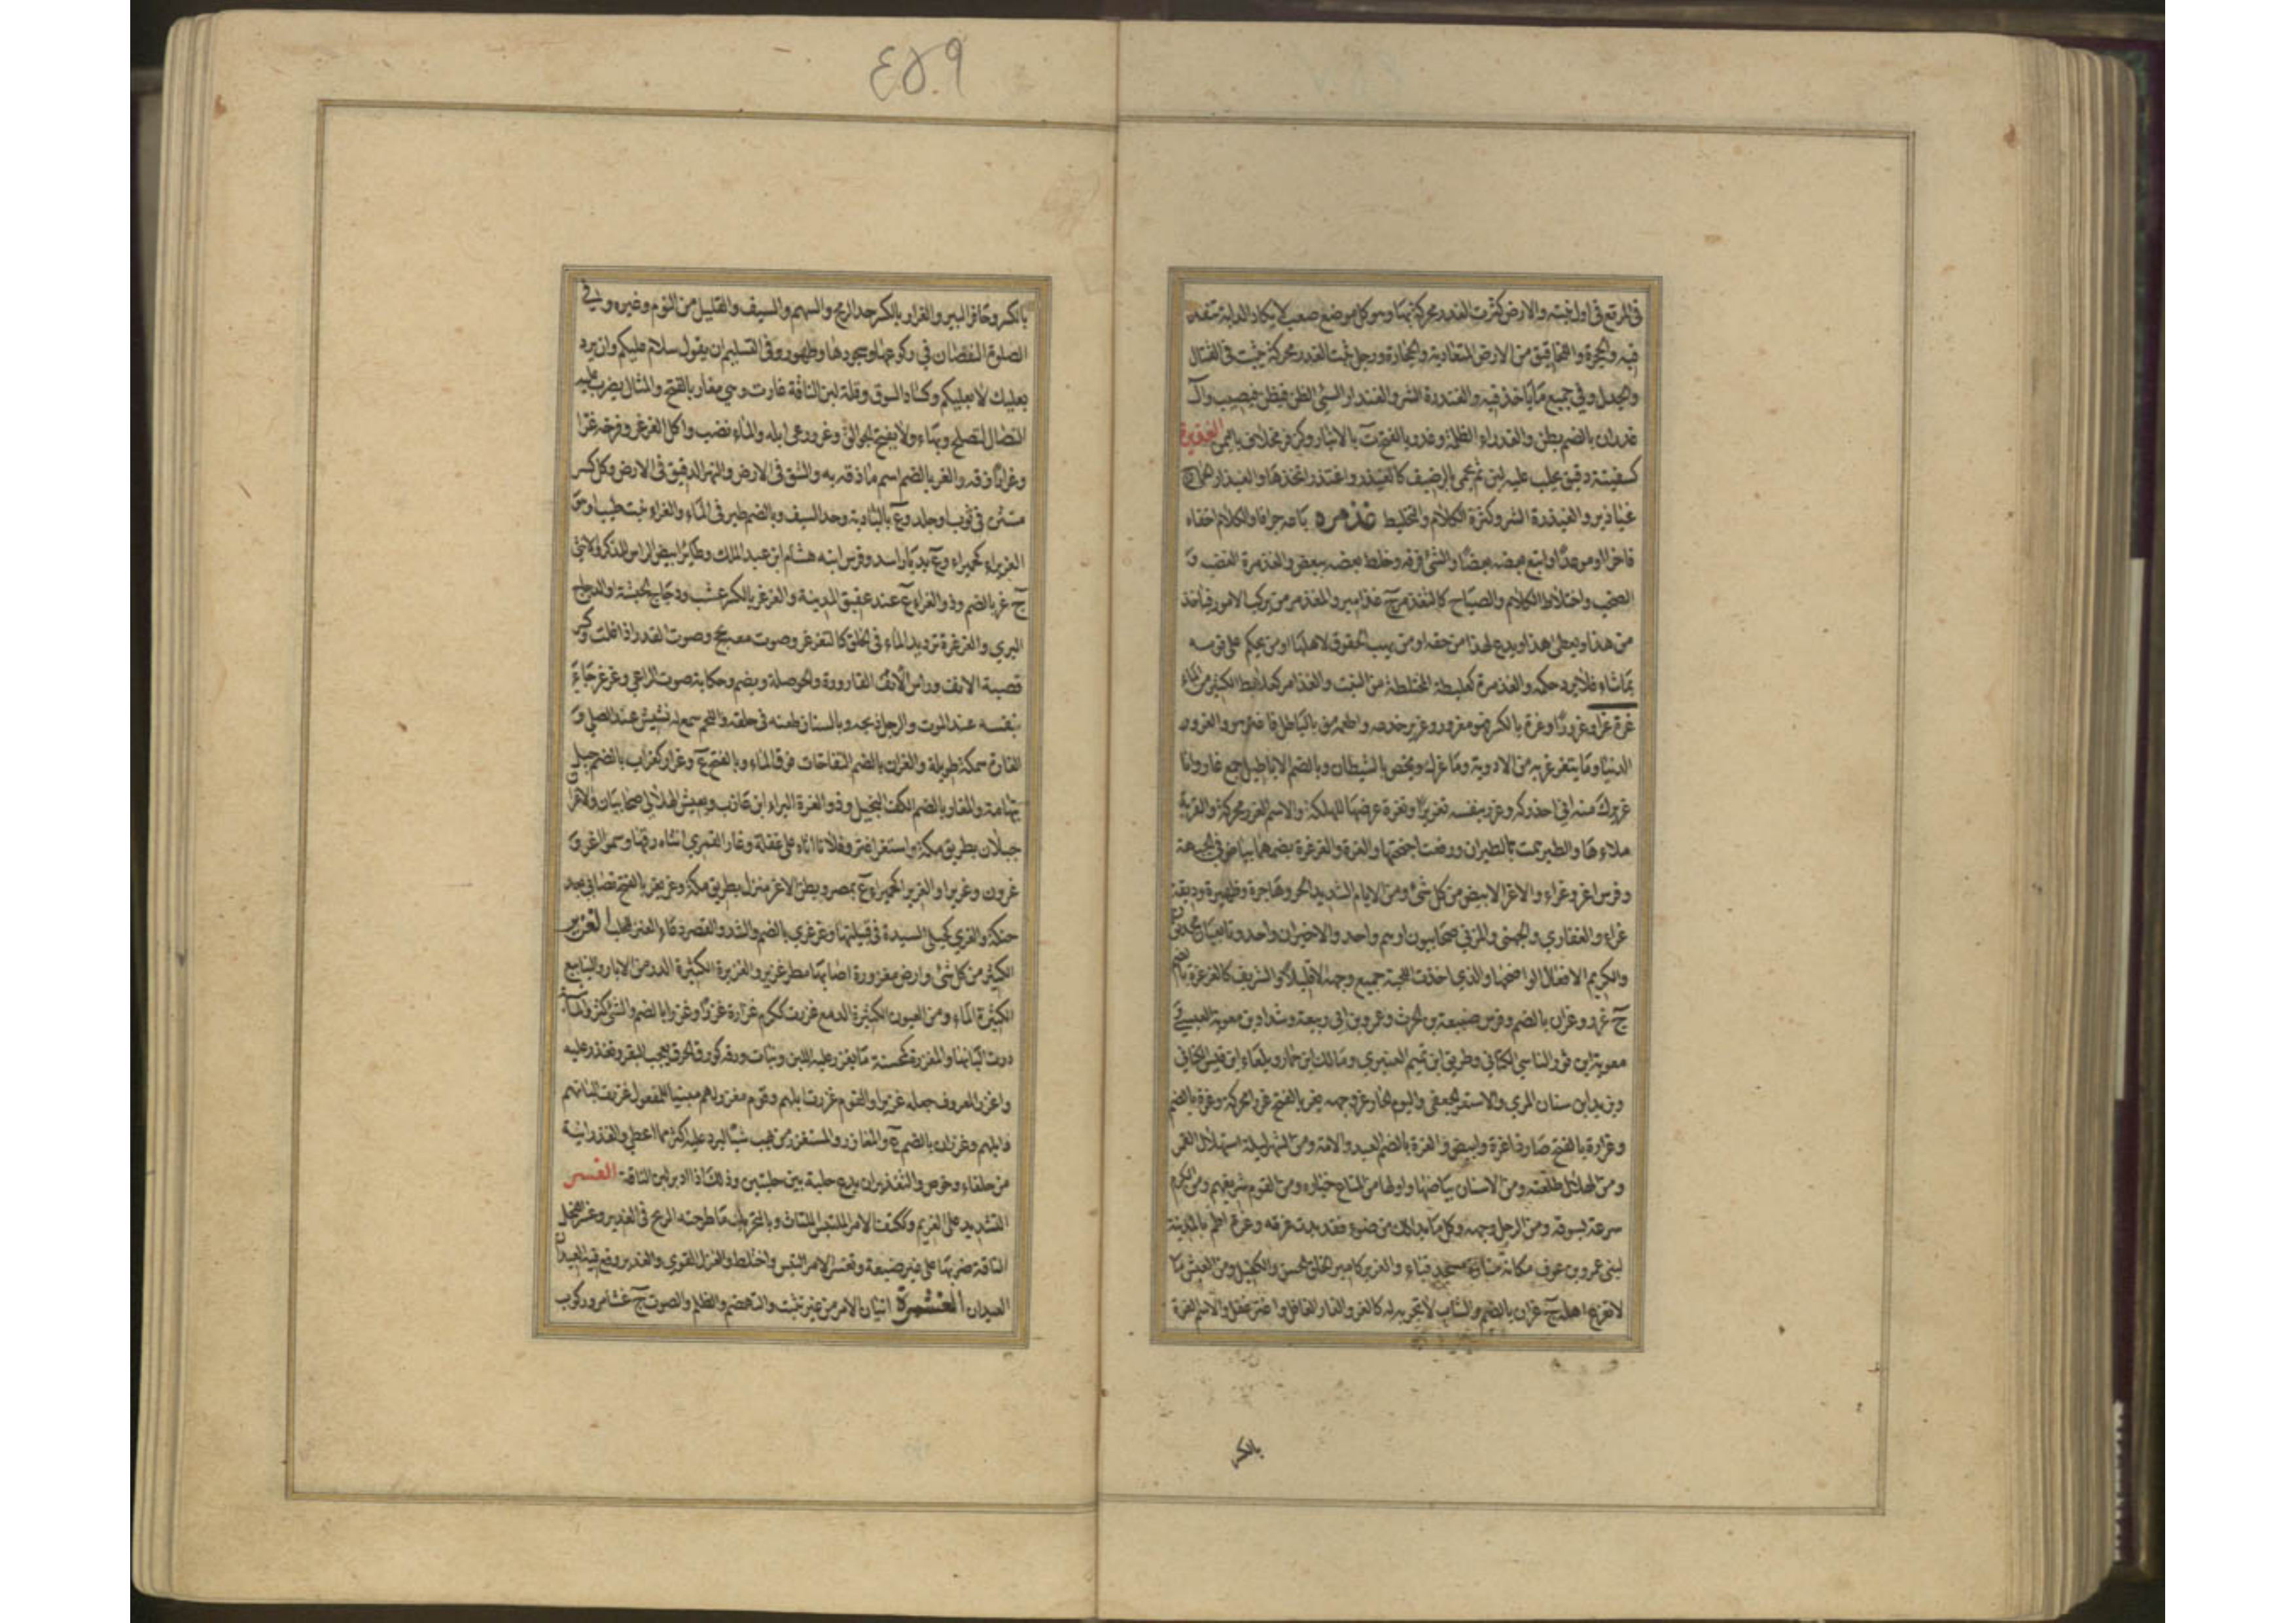 ٤٥٩
في المرتع في اول نبته والارض كثرت الغدر محركة بها وهو كل موضع صعب لا يكاد الدابة تنفد
فيه والجحرة واللخاقيق من الارض المتعادية والحجارة ورجل ثبت الغدر محركة يثبت في القتال
والجدل وفي جميع ما ياخذ فيه والغندرة الشر
غدران بالضم بطن والغدراء الظلمة وغدر بالفتح ة بالانبار الغذيرة
كسفينة دقيق يحلب عليه لبن ثم يحمى بالرضيف كالغيذر واغتذر اتخذها والغيذار الحمار ج
غياذير والغيذرة الشر وكثرة الكلام والتخليط غذمره باعه جزافا والكلام اخفاه
فاخرا او موعدا او اتبع بعضه بعضا والشئ فرقه وخلط بعضه ببعض والغذمرة الغضب و
الصخب واختلاط الكلام والصياح كالتغذمر ج غذامير والمغذمر من يركب الامور فياخذ
من هذا ويعطي هذا ويدع لهذا من حقه او من يهب الحقوق لاهلها او من يحكم على قومه
بما شاء فلا يرد حكمه والغذمرة كعلبطة المختلطة من النبت والغذامر كعلابط الكثير من الماء
غره غرا وغرورا وغرة بالكسر فهو مغرور وغرير خدعه واطمعه بالباطل فاغتر هو والغرور
الدنيا وما يتغرغر به من الادوية وما غرك ويخص بالشيطان وبالضم الاباطيل جمع غار وانا
غريرك منه اي احذركه وغرر بنفسه تغريرا وتغرة عرضها للهلكة والاسم الغرر محركة والقربة
ملاءها والطير همت بالطيران ورفعت اجنحتها والغرة والغرغرة بضمهما بياض في الجبهة
وفرس اغر وغراء والاغر الابيض من كل شئ ومن الايام الشديد الحر وهاجرة وظهيرة ووديقة
غراء والغفاري والجهني والمزني صحابيون او هم واحد والاخيران واحد وتابعيان
والكريم الافعال الواضحها والذي اخذت اللحية جميع وجهه الا قليلا والشريف كالغرغرة بالضم
ج غرر وغران بالضم وفرس ضبيعة بن الحرث وعمرو بن ابي ربيعة وشداد بن معوية العبسي و
معوية ابن ثور الناسي البكائي وطريف ابن تميم العنبري ومالك ابن حمار وبلعاء ابن قيس الكناني
ويزيد ابن سنان المري والاسعر الجعفي واليوم الحار وغر وجهه يغر بالفتح غررا محركة وغرة بالضم
وغرارة بالفتح صار ذا غرة وابيض والغرة بالضم العبد والامة ومن الشهر ليلة استهلال القمر
ومن الهلال طلعته ومن الاسنان بياضها واولها من المتاع خياره ومن القوم شريفهم ومن الكرم
سرعة بسوقه ومن الرجل وجهه وكل ما بدا لك من ضوء فقد بدت غرته وغرة اطم بالمدينة
لبني عمرو بن عوف مكانه منارة مسجد قباء والغرير كامير الخلق الحسن والكفيل ومن العيش ما
لا يفزع اهله ج غران بالضم والشاب لا تجربة له كالغر والغار الغافل واغتر غفل والاسم الغرة
بالكسر
بالكسر وحافر البير والغرار بالكسر حد الرمح والسهم والسيف والقليل من النوم وغيره وفي
الصلوة النقصان في ركوعها وسجودها وطهوره وفي التسليم ان يقول سلام عليكم وان يرد
بعليك لا بعليكم وكساد السوق وقلة لبن الناقة غارت وهي مغار بالفتح والمثال يضرب عليه
النصال لتصلح وبهاء ولا يفتح الجوالق وغرور عى ابله والماء نضب واكل الغرغر وفرخه غرا
وغرارا زقه والغر بالضم اسم ما زقه به والشق في الارض والنهر الدقيق في الارض وكل كسر
متثن في ثوب او جلد وع بالبادية وحد السيف وبالضم طير في الماء والغراء نبت طيب او هو
الغريراء كحميراء وع بديار اسد وفرس ابنة هشام ابن عبد الملك وطائر ابيض الراس للذكر والانثى
ج غر بالضم وذو الغراء ع عند عقيق المدينة والغرغر بالكسر عشب ودجاج الحبشة او الدجاج
البري والغرغرة ترديد الماء في الحلق كالتغرغر وصوت معه بحح وصوت القدر اذا غلت وكسر
قصبة الانف وراس القارورة والحوصلة ويضم وحكاية صوت الراعي وغرغر جاد
بنفسه عند الموت والرجل ذبحه وبالسنان طعنه في حلقه واللحم سمع له نشيش عند الصلي و
الغارة سمكة طويلة والغران بالضم النفاخات فوق الماء وبالفتح ع وغرار كغراب بالضم جبل
بتهامة والمغار بالضم الكف البخيل وذو الغرة البراء ابن عازب ويعيش الهلالي صحابيان والاغران
جبلان بطريق مكة واستغر اغتر وفلانا اتاه على غفلة وغار القمري انثاه زقها وسموا اغر و
غرون وغريرا والغريراء كحميراء ع بمصر وبطن الاغر منزل بطريق مكة وغر يغر بالفتح تصابى بعد
حنكة والغري كحبلى السيدة في قبيلتها وغرغري بالضم والشد والقصر دعاء العنز للحلب الغزير
الكثير من كل شئ وارض مغزورة اصابها مطر غزير والغزيرة الكثيرة الدر من الابار والينابيع
الكثيرة الماء ومن العيون الكثيرة الدمع غزرت ككرم غزارة وغزرا وغزرا بالضم والشئ كثر والماشية
درت البانها والمغزرة كمحسنة ما يغزر عليه اللبن ونبات ورقه كورق الحرف يعجب البقر وتغزر عليه
واغزر المعروف جعله غزيرا والقوم غزرت ابلهم وقوم مغزر لهم مبنيا للمفعول غزرت البانهم
وابلهم وغزران بالضم ع والمغازر والمستغزر من يهب شيئا ليرد عليه اكثر مما اعطى
من حلفاء وخوص والتغزير ان يدع حلبة بين حلبتين وذلك اذا ادبر لبن الناقة الغسر
التشديد على الغريم وككتف الامر الملتبس الملتاث وبالتحريك ما طرحته الريح في الغدير وغسر الفحل
الناقة ضربها على غير ضبعة وتغسر الامر التبس واختلط والغزل التوى والغدير وقع فيه العيدان
العيدان الغشمرة اتيان الامر من غير تثبت والتهضم والظلم والصوت ج غشامر وركوب